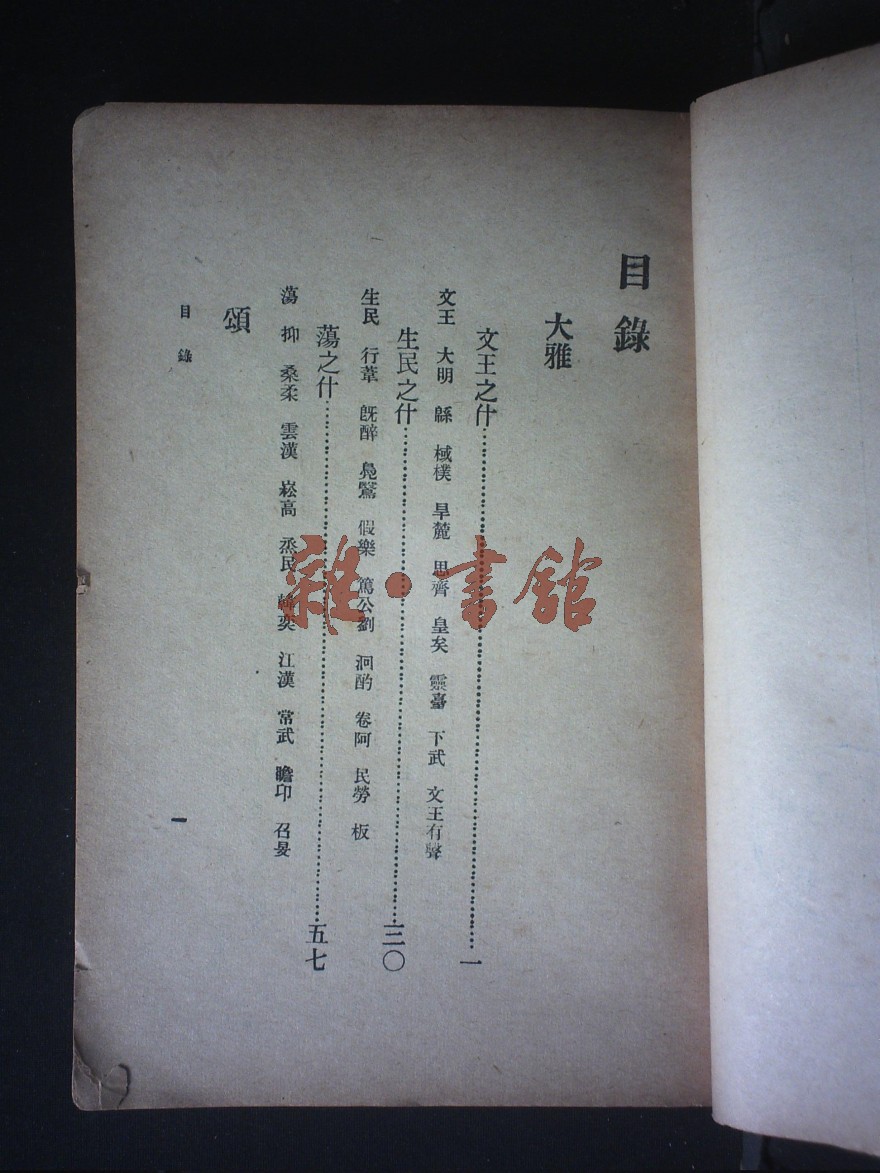 目錄
大雅
文王之什⋯⋯⋯⋯⋯⋯⋯⋯⋯⋯⋯⋯⋯⋯一
文王 大明 緜 棫樸 旱麓 思齊 皇矣 靈臺 下武 文王有聲
生民之什⋯⋯⋯⋯⋯⋯⋯⋯⋯⋯⋯⋯⋯⋯三〇
生民 行葦 旣醉 鳧鷖 假樂 篤公劉 泂酌 卷阿 民勞 板
蕩之什⋯⋯⋯⋯⋯⋯⋯⋯⋯⋯⋯⋯⋯⋯五七
蕩 抑 桑柔 雲漢 崧高 烝民 韓奕 江漢 常武 瞻卬 召旻
頌
目錄
一
雜·書館